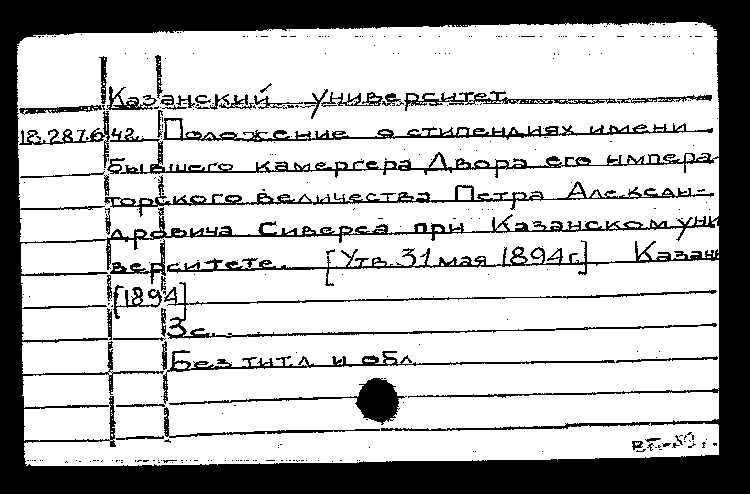 Казанский университет
18.287.6.42. Положение о стипендиях имени
бывшего камергера Двора его импера-
торского величества Петра Александ-
дровича Сиверса при Казанском уни-
верситете. [Утв. 31 мая 1894 г.] Казань
[1894]
3 с.
Без тит. л и обл